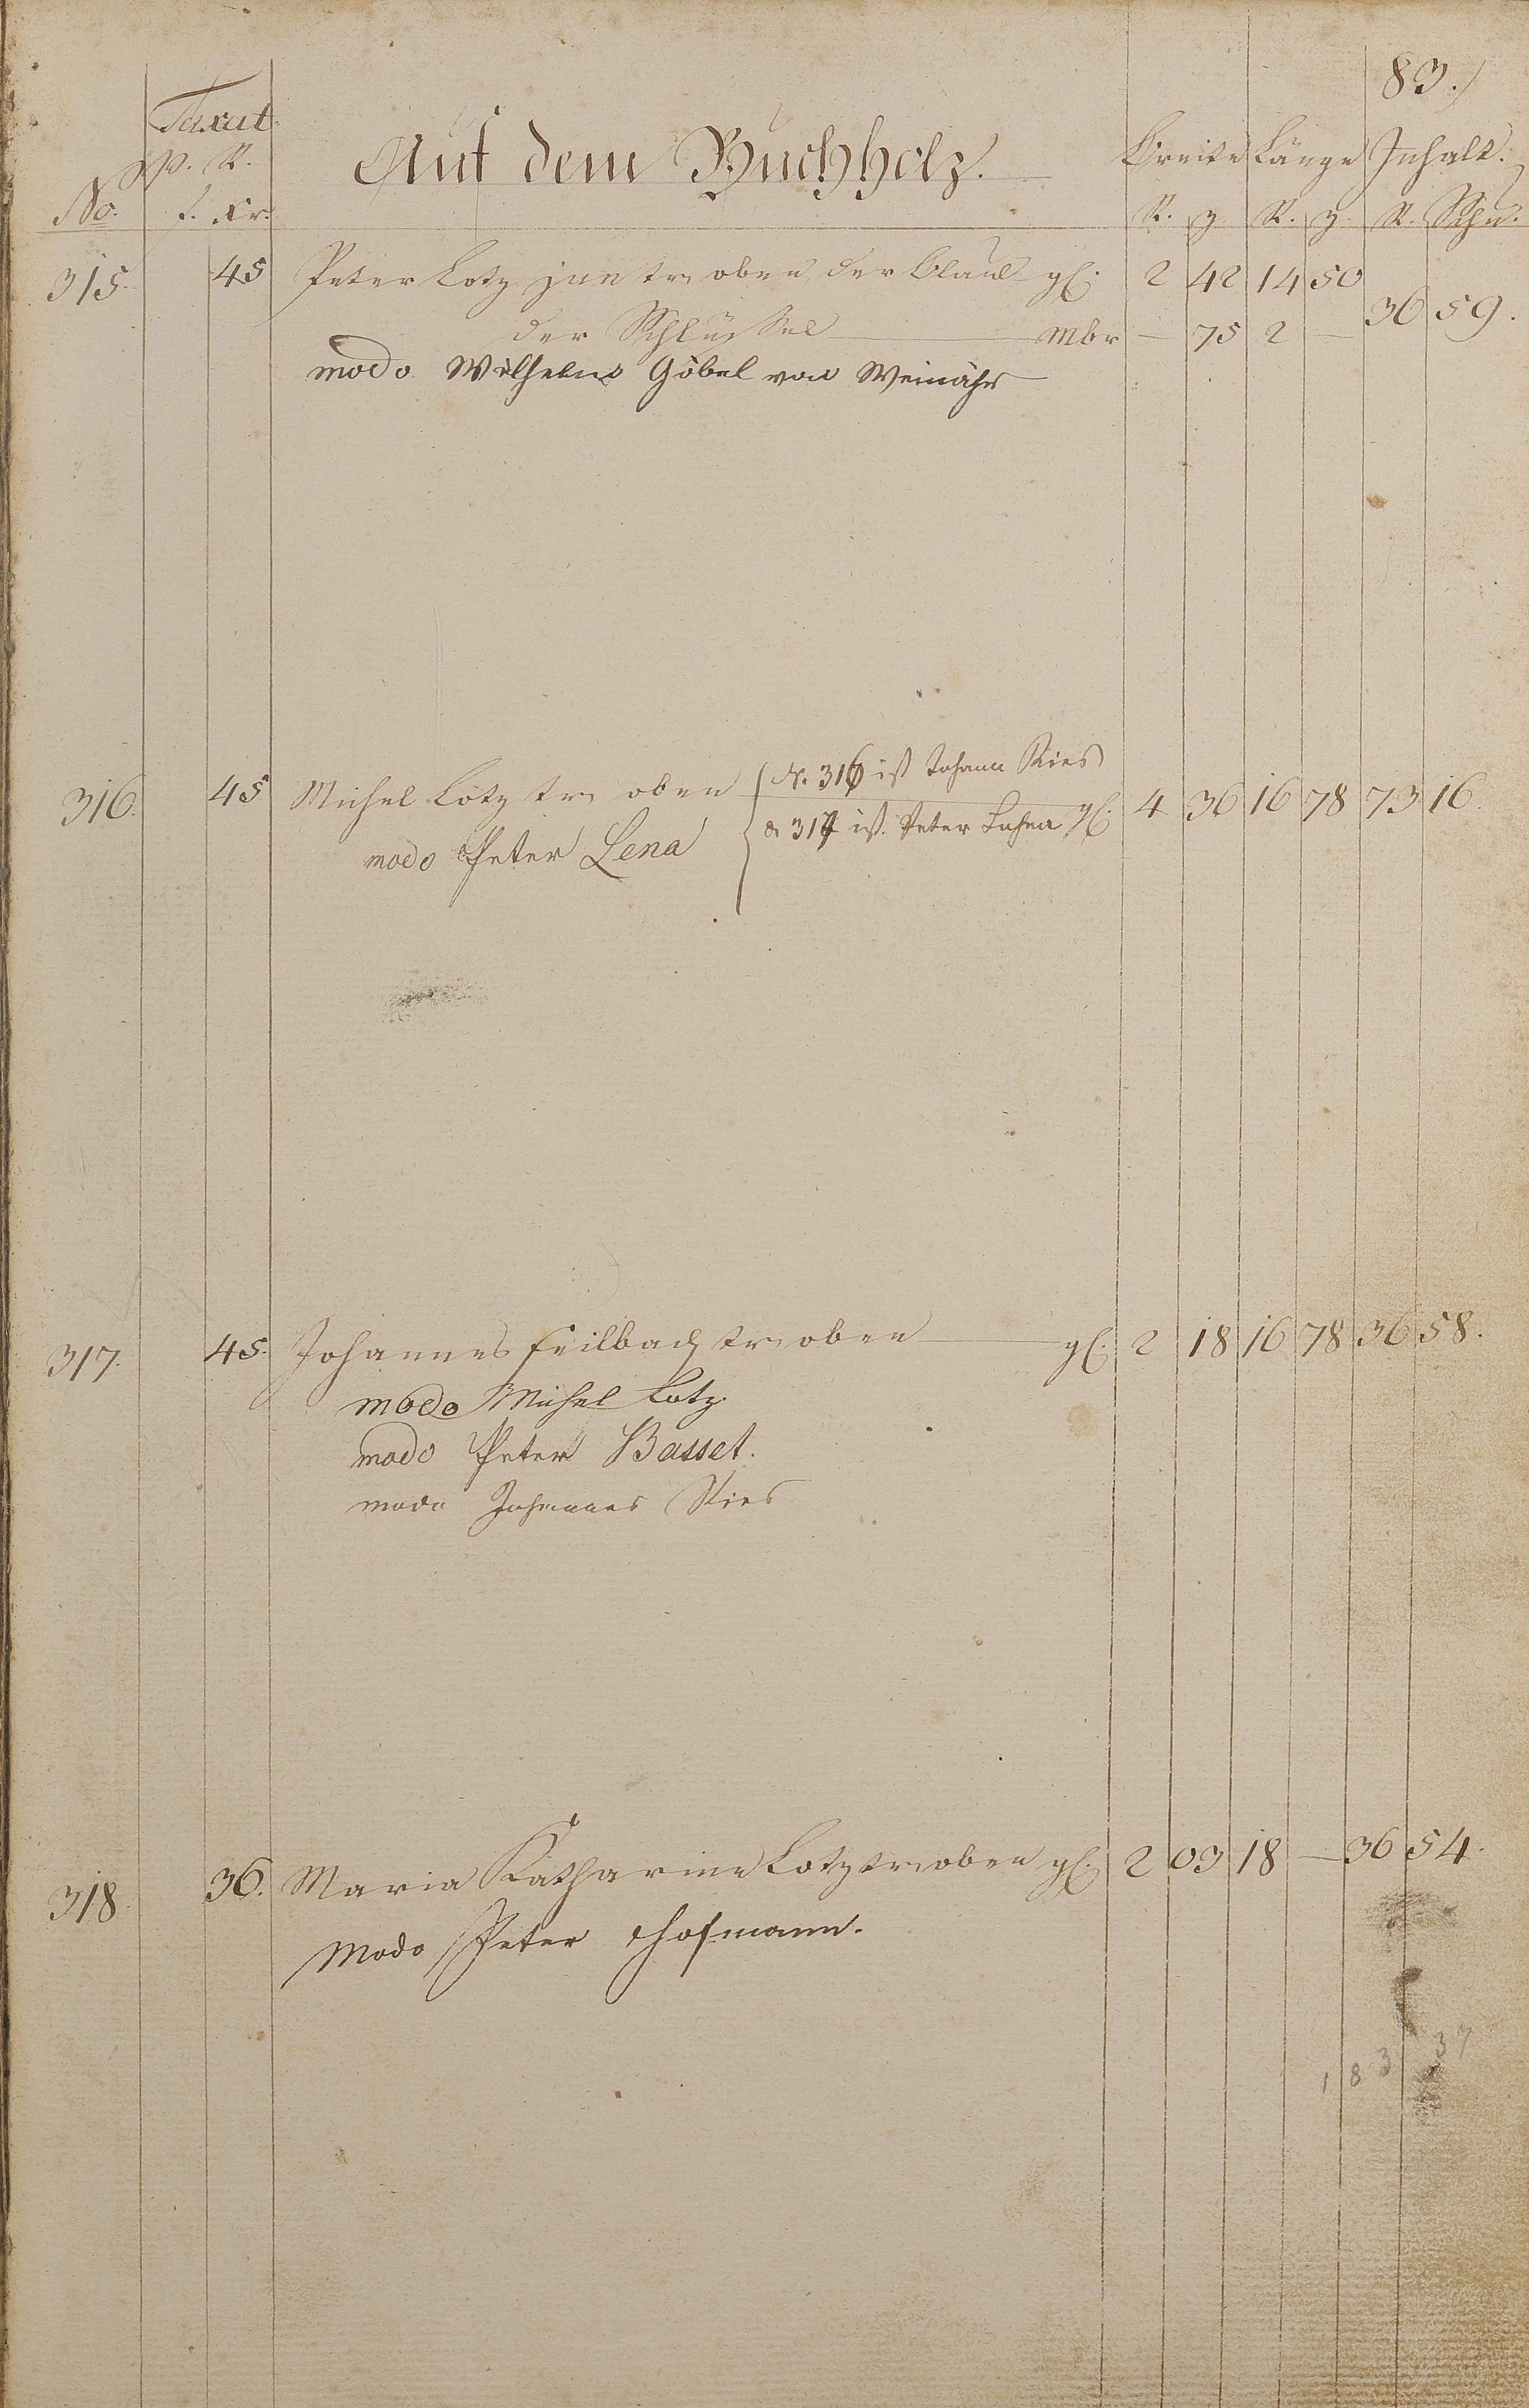 83./
Taxat.
p. R.
No. f. Xr.
Auf dem Buchholz.
Breite Länge Inhalt.
R. z. R. z. R. Schu.
315. 45 Peter Lotz jun tr oben der gl: 2 42 14 50
36 59.
der Schlüssel Mbr — 75 2 —
modo Wilhelm Göbel von Weinähr
316. 45 Michel Lotz tr oben gl: 4 36 16 78 73 16.
N. 316 ist Johann Ries
& 317 ist Peter Lehna
modo Peter Lena
317. 45. Johannes Feilbach tr oben gl: 2 18 16 78 36 58.
modo Michel Lotz.
modo Peter Basset.
modo Johannes Ries
318. 36. Maria Katharina Lotz tr oben gl: 2 03 18 — 36 54.
Modo Peter Hofmann.
183 37